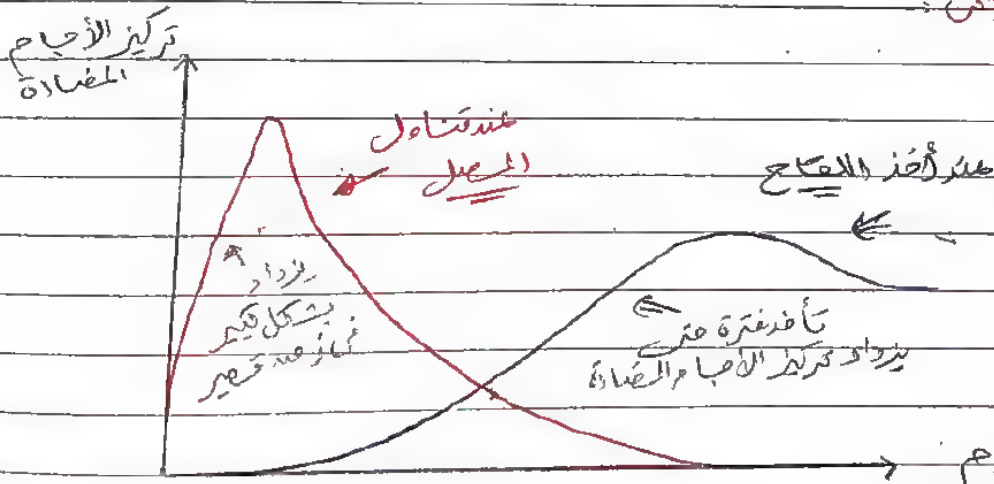 تركيز الأجسام
المضادة
عند تناول
المصل
عند أخذ اللقاح
يزداد
بشكل كبير
في زمن قصير
تأخذ فترة حتى
يزداد تركيز الأجسام المضادة